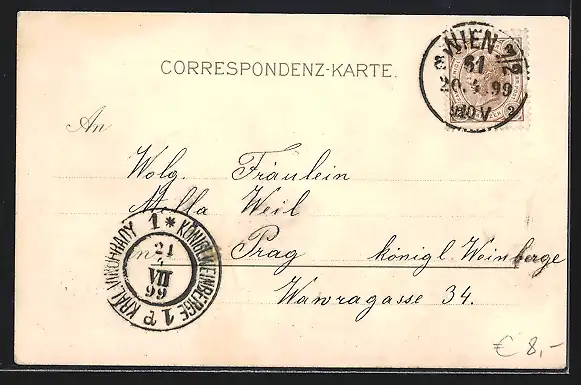 WIEN 7/2
61
20.4.99
CORRESPONDENZ-KARTE.
An
Wolg. Fräulein
Mella Weil
in Prag königl Weinberge
Wawragasse 34.
KRÁL. VINOHRADY 1 * KÖNIGL. WEINBERGE 1
21
VII
99
€ 8,-